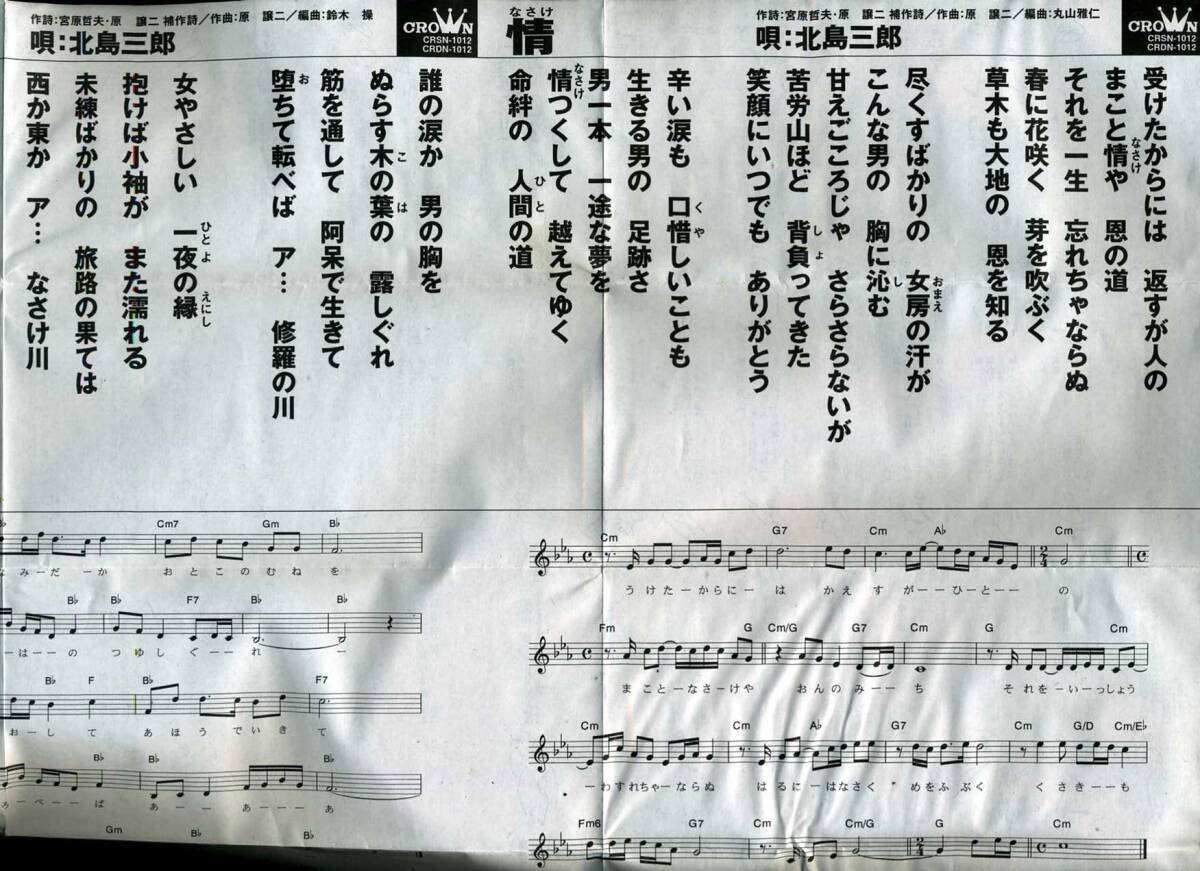 情
なさけ
作詩:宮原哲夫・原　譲二 補作詩/作曲:原　譲二/編曲:丸山雅仁
唄:北島三郎
CROWN
CRSN-1012
CRDN-1012
受けたからには　返すが人の
まこと情や　恩の道
なさけ
それを一生　忘れちゃならぬ
春に花咲く　芽を吹ぶく
草木も大地の　恩を知る
尽くすばかりの　女房の汗が
おまえ
こんな男の　胸に沁む
し
甘えごころじゃ　さらさらないが
苦労山ほど　背負ってきた
しょ
笑顔にいつでも　ありがとう
辛い涙も　口惜しいことも
くや
生きる男の　足跡さ
男一本　一途な夢を
情つくして　越えてゆく
なさけ
命絆の　人間の道
ひと
作詩:宮原哲夫・原　譲二 補作詩/作曲:原　譲二/編曲:鈴木　操
唄:北島三郎
CROWN
CRSN-1012
CRDN-1012
誰の涙か　男の胸を
ぬらす木の葉の　露しぐれ
こ は
筋を通して　阿呆で生きて
堕ちて転べば　ア…　修羅の川
お
女やさしい　一夜の縁
ひとよ えにし
抱けば小袖が　また濡れる
未練ばかりの　旅路の果ては
西か東か　ア…　なさけ川
Cm G7 Cm A♭ Cm
うけたーからにー は かえす がーーひーとーー の
Fm G Cm/G G7 Cm G Cm
まことーなさーけや おんのみーーち それをーいーっしょう
Cm Cm A♭ G7 Cm G/D Cm/E♭
ーわすれちゃーならぬ はるにーはなさく めをふぶく くさきーーも
Fm6 G7 Cm Cm/G G Cm
Cm7 Gm B♭
なみーだーか おとこのむねを
B♭ B♭ F7 B♭ B♭
ーはーーの つゆしぐーーれ ー
B♭ F B♭ F7
おーして あほうでいきて
B♭ B♭
ろーべーーば あーーあーーあ
Gm B♭ B♭